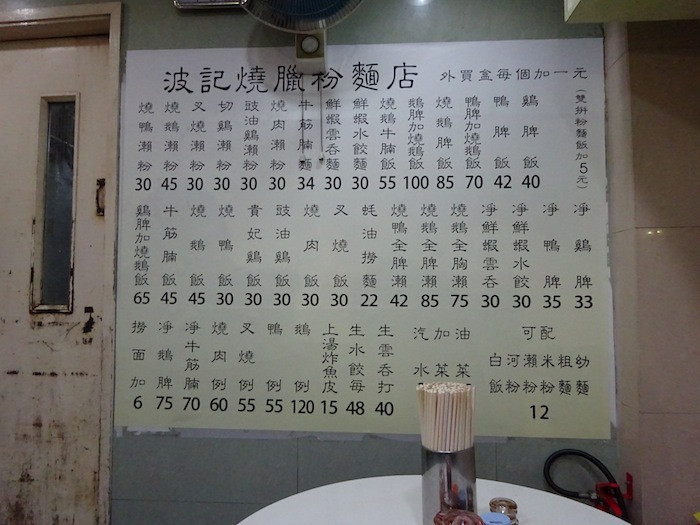 波記燒臘粉麵店
外買盒每個加一元
(雙拼粉麵飯加5元)
燒鴨瀨粉 30
燒鵝瀨粉 45
叉燒瀨粉 30
切雞瀨粉 30
豉油雞瀨粉 30
燒肉瀨粉 30
牛筋腩麵 34
鮮蝦雲吞麵 30
鮮蝦水餃麵 30
燒鵝牛腩飯 55
鵝脾加燒鵝飯 100
燒鵝脾飯 85
鴨脾加燒鴨飯 70
鴨脾飯 42
雞脾飯 40
雞脾加燒鵝飯 65
牛筋腩飯 45
燒鵝飯 45
燒鴨飯 30
貴妃雞飯 30
豉油雞飯 30
燒肉飯 30
叉燒飯 30
蚝油撈麵 22
燒鴨全脾瀨 42
燒鵝全脾瀨 85
燒鵝全胸瀨 75
淨鮮蝦雲吞 30
淨鮮蝦水餃 30
淨鴨脾 35
淨雞脾 33
撈面加 6
淨鵝脾 75
淨牛筋腩 70
燒肉例 60
叉燒例 55
鴨例 55
鵝例 120
上湯炸魚皮 15
生水餃每 48
生雲吞打 40
汽水
加菜
油菜
可配
白飯
河粉
瀨粉
米粉
粗麵
幼麵
12